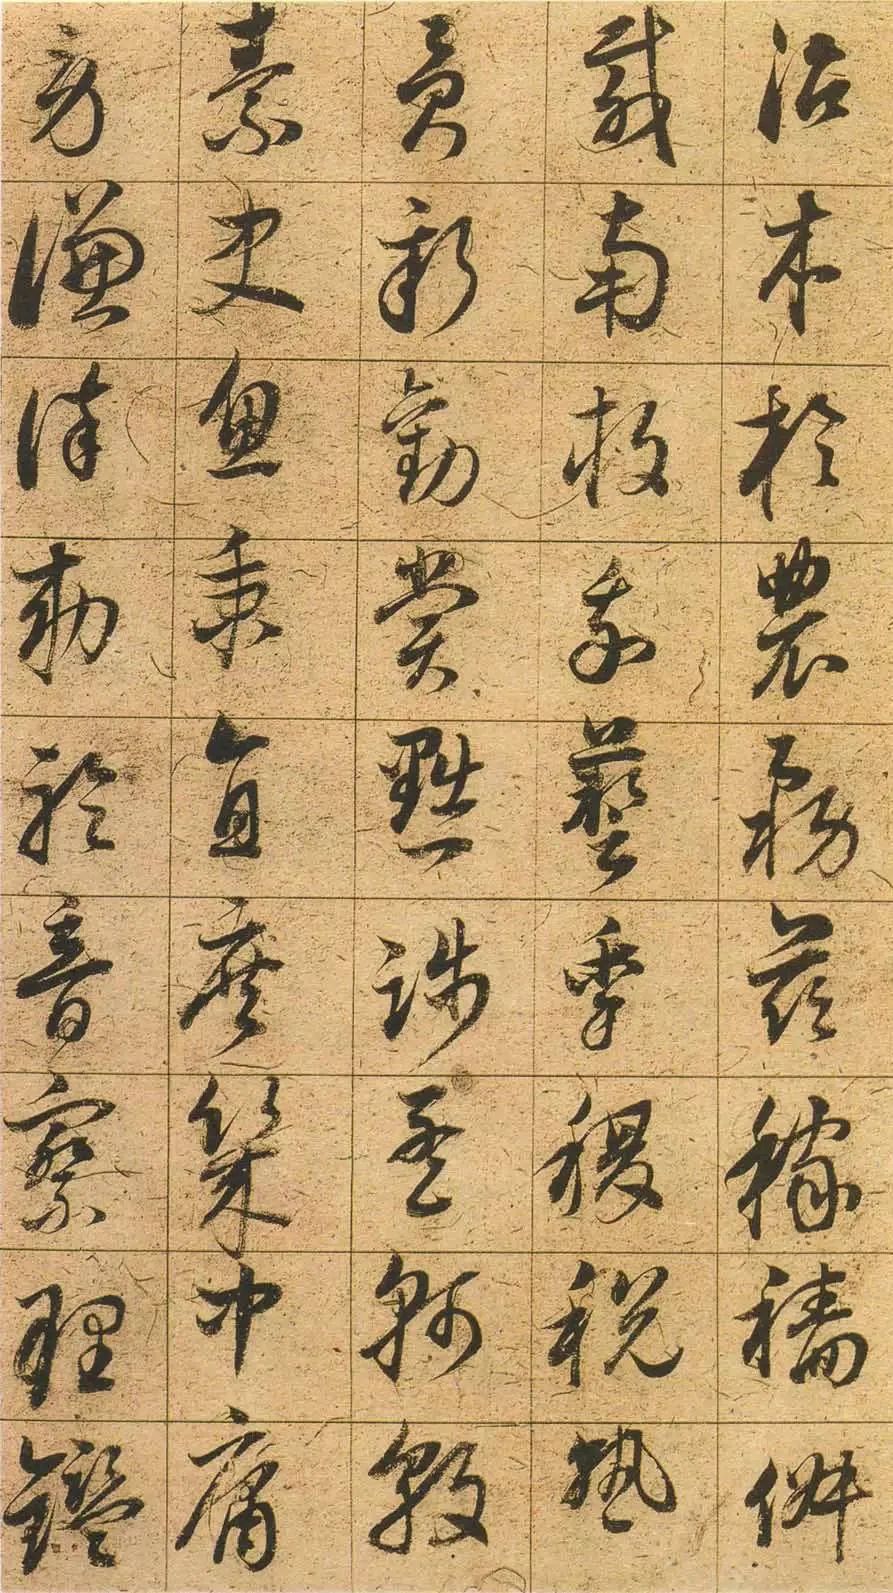 治本於農務茲稼穡俶
載南畝我藝黍稷稅熟
貢新勸賞黜陟孟軻敦
素史魚秉直庶幾中庸
勞謙謹敕聆音察理鑑